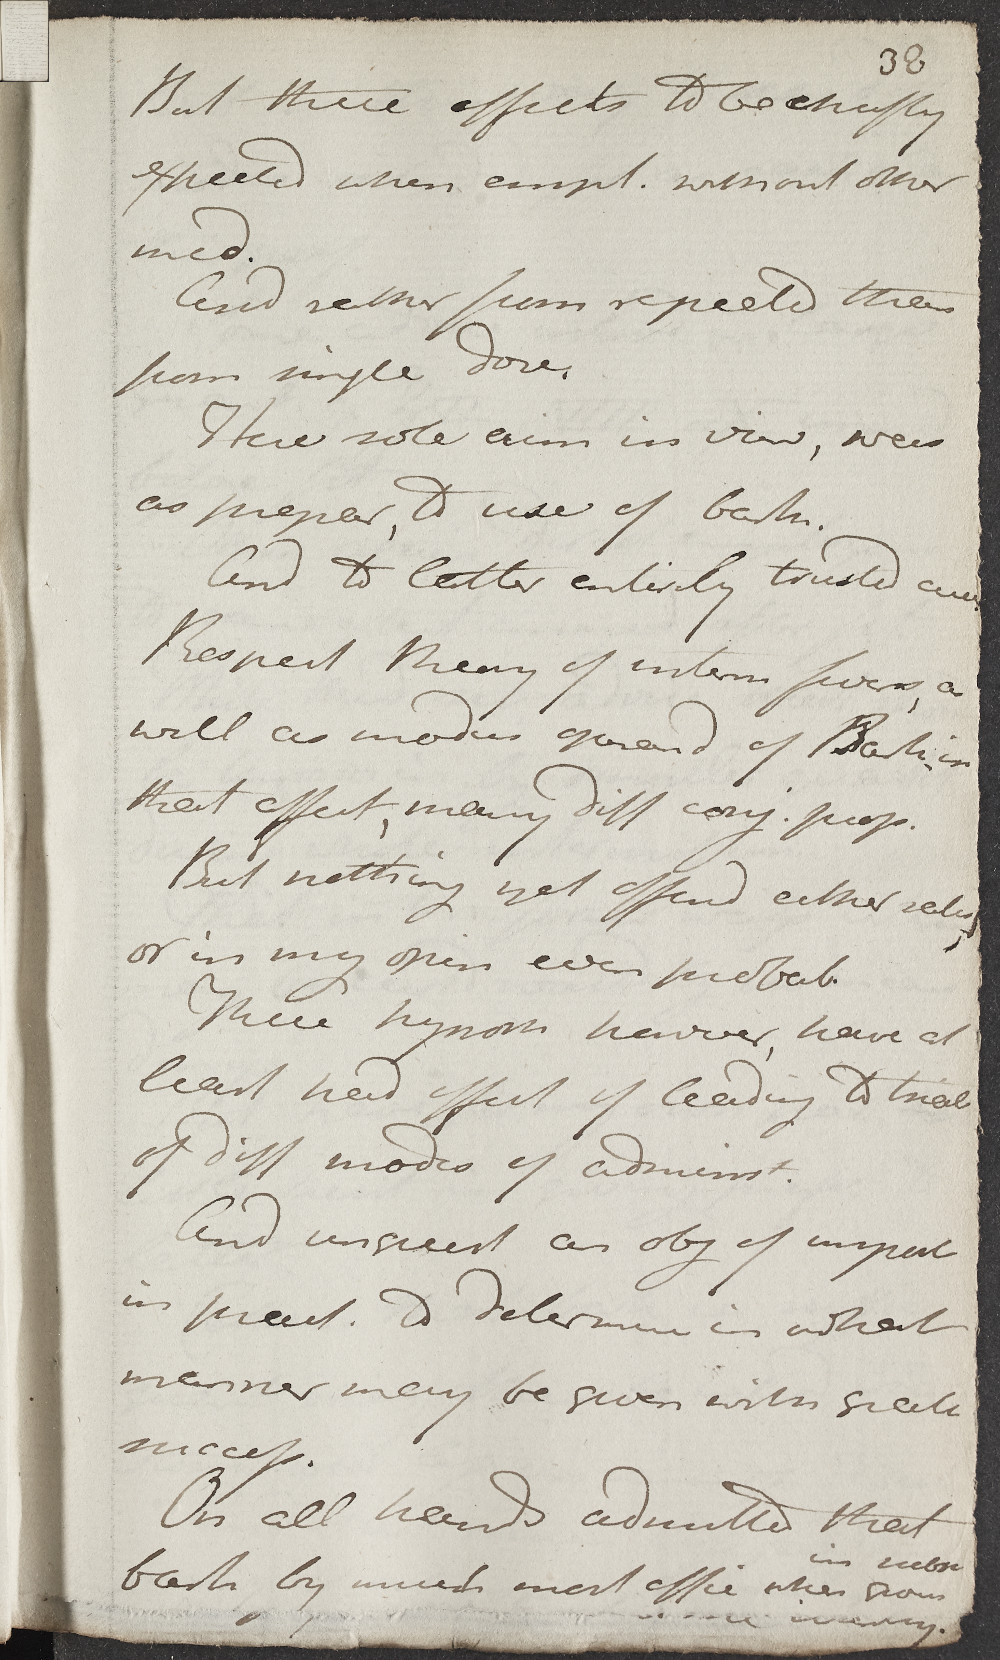 38
But these effects to be chiefly
expected when empl. without other
med.
And rather from repeated than
from single dose.
Here sole aim in view, was
as prepar, to use of bark.
And to latter entirely trusted cure.
Respect theory of interm fevers, as
well as modus operand of Bark in
that effect, many diff conj. prop.
But nothing yet offered either satis,
or in my opin even probab.
These hypoth however, have at
least had effect of leading to trial
of diff modes of administ.
And unquest an obj of import
in pract. to determine in what
manner may be given with great
success.
On all hands admitted that
bark by much most effic when given
in subst